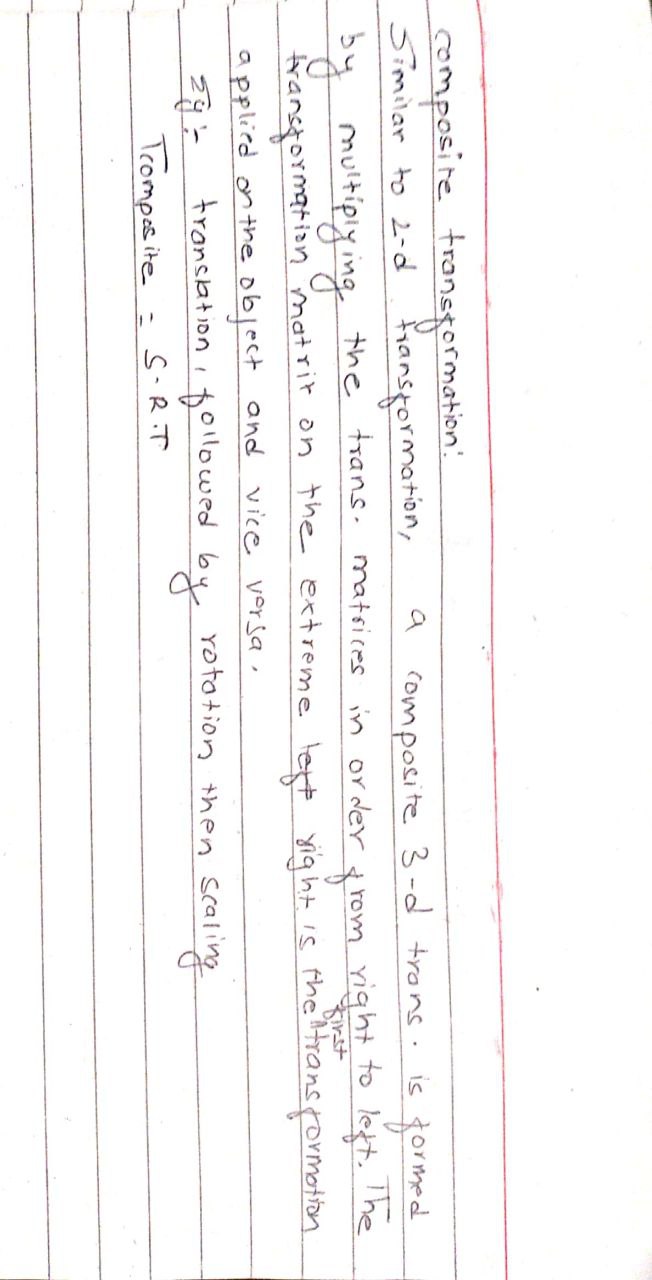 composite transformation:
Similar to 2-d transformation, a composite 3-d trans. is formed
by multiplying the trans. matrices in order from right to left. The
transformation matrix on the extreme left right is the first transformation
applied on the object and vice versa.
Eg:- translation, followed by rotation then scaling
Tcomposite = S.R.T